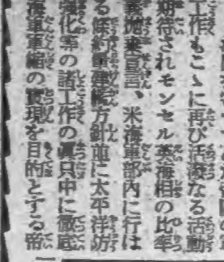 工作もこゝに再び活潑なる活動
期待されモンセル英海相の比率
義抛棄宣言、米海軍部內に行は
る條約重建艦方針並に太平洋防
强化等の諸工作の眞只中に徹底
海軍軍縮の實現を目的とする帝